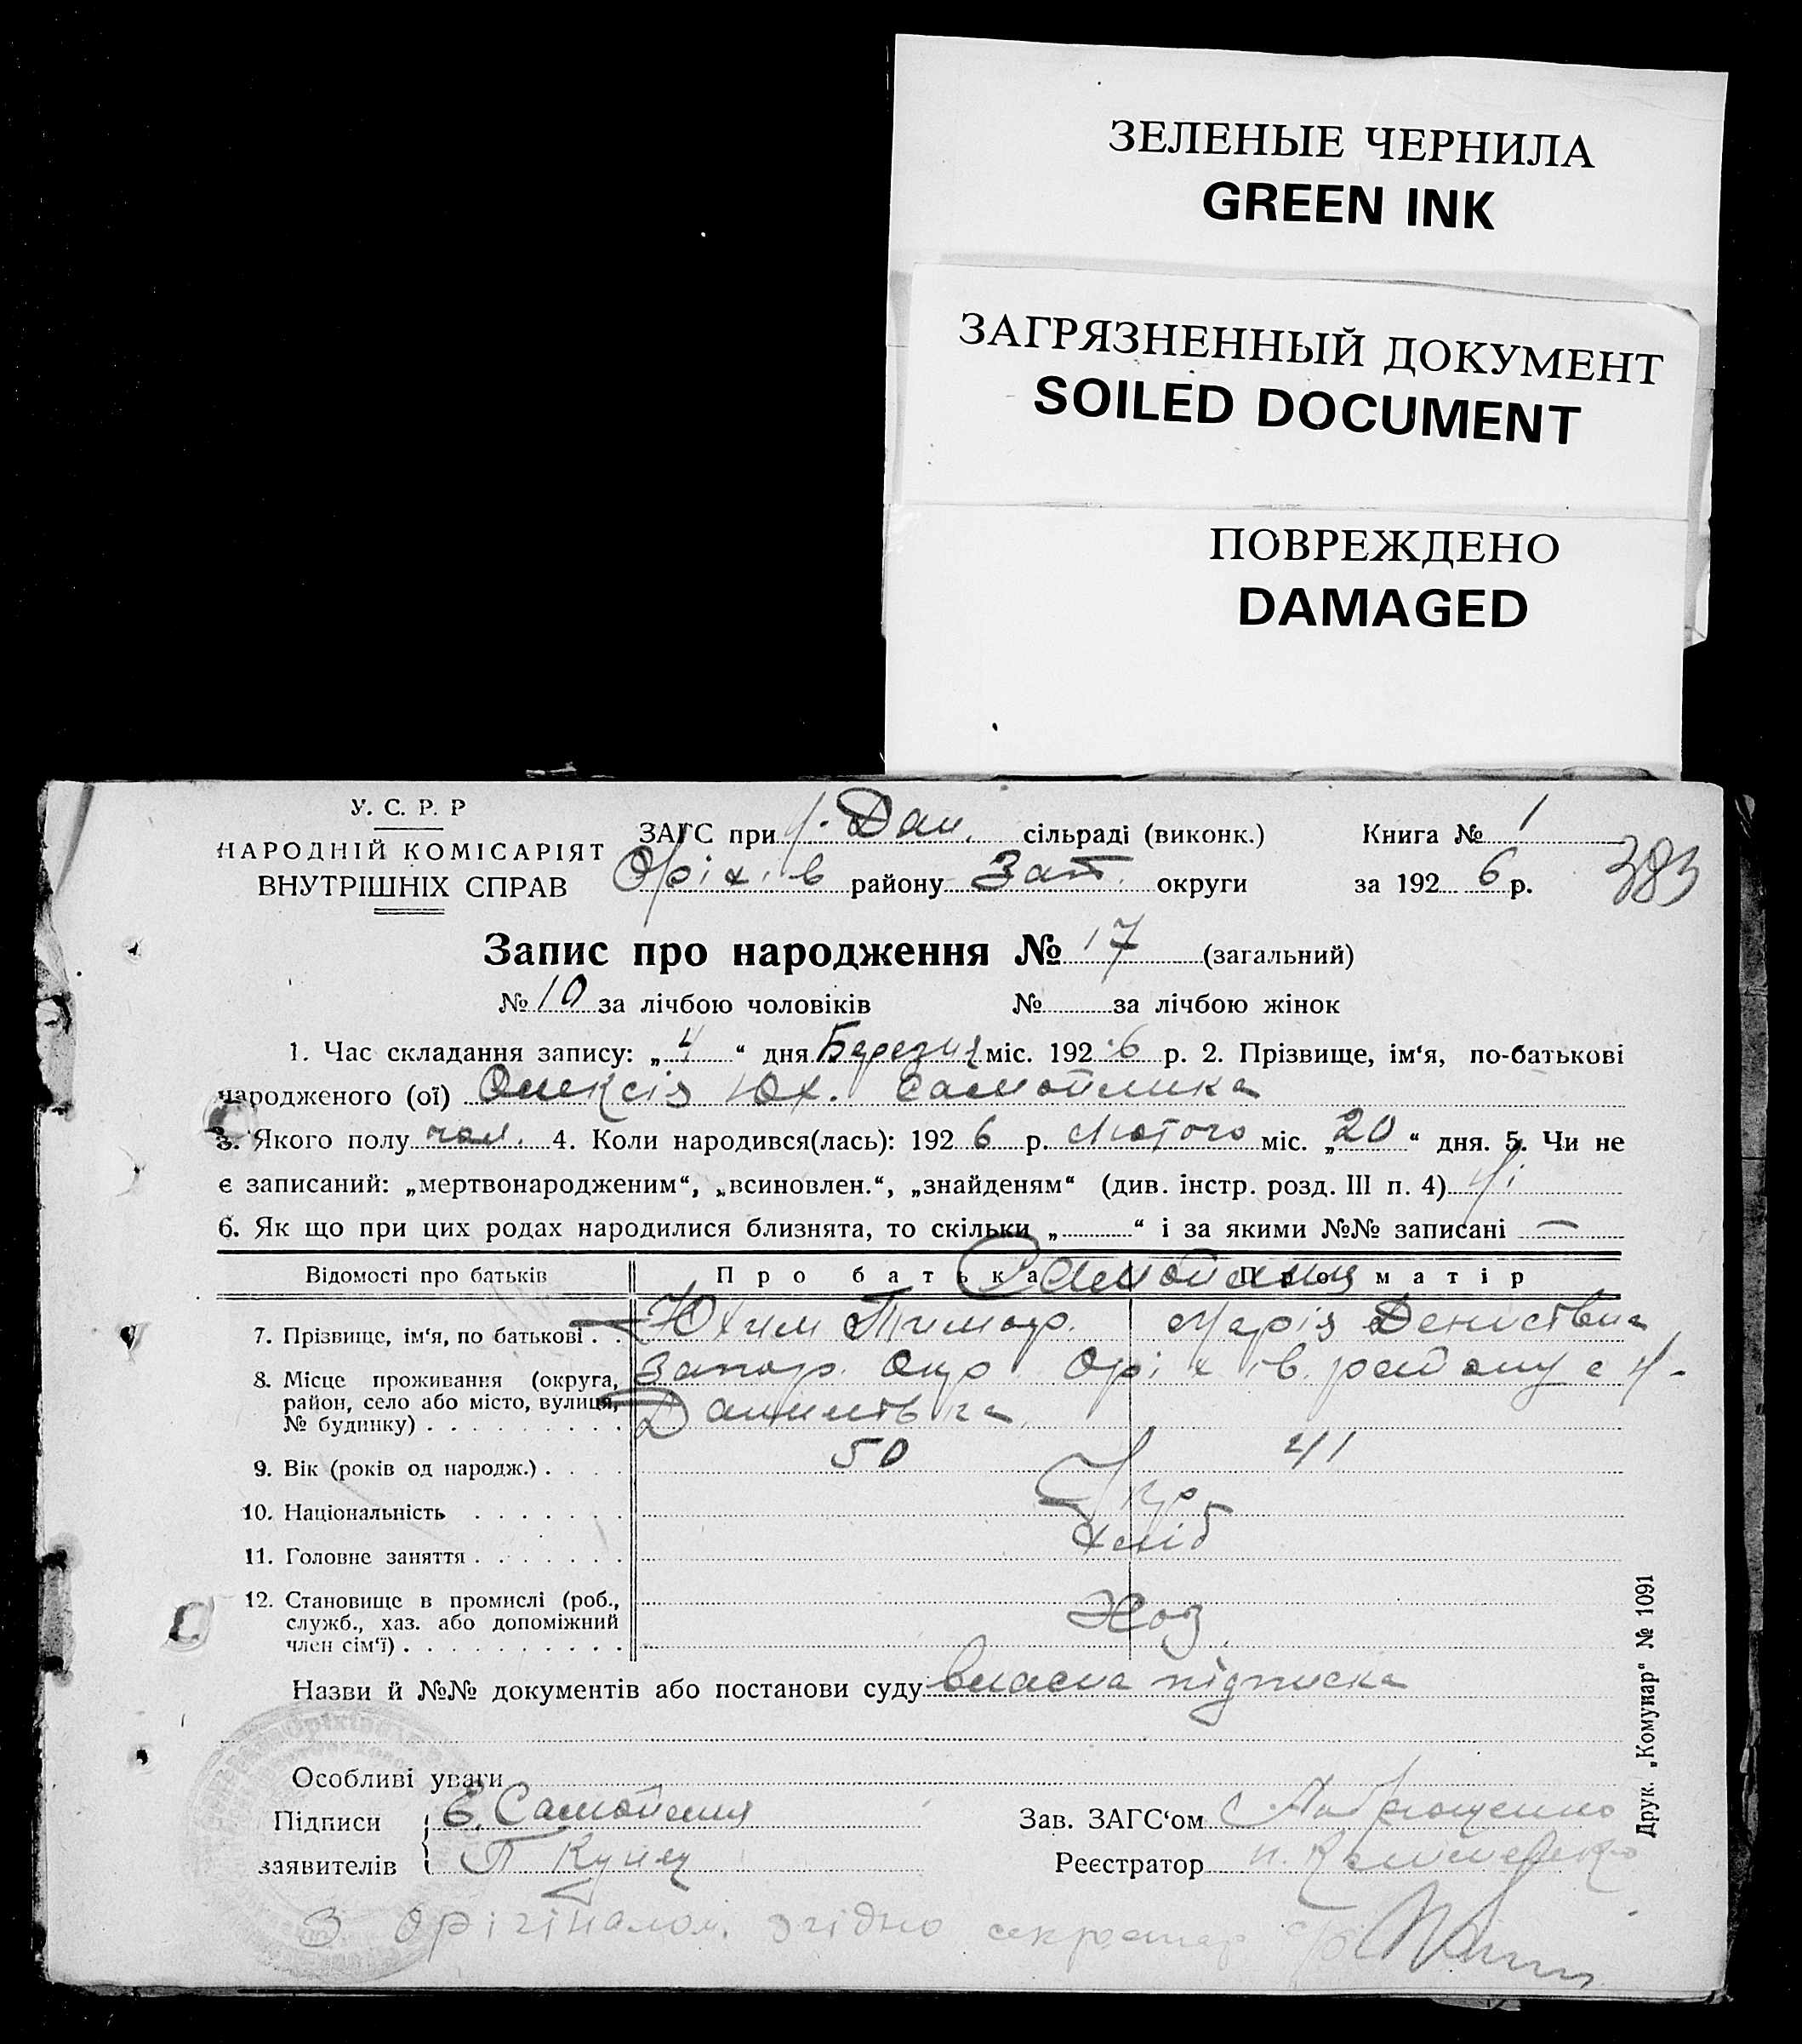 ЗЕЛЕНЫЕ ЧЕРНИЛА
GREEN INK
ЗАГРЯЗНЕННЫЙ ДОКУМЕНТ
SOILED DOCUMENT
ПОВРЕЖДЕНО
DAMAGED
У. С. Р. Р
НАРОДНІЙ КОМІСАРІЯТ
ВНУТРІШНІХ СПРАВ
ЗАГС при Н. Дан. сільраді (виконк.)
Оріхів району Зап. округи
Книга № 1
за 1926 р.
383
Запис про народження № 17 (загальний)
№ 10 за лічбою чоловіків № за лічбою жінок
1. Час складання запису: „4“ дня Березня міс. 1926 р. 2. Прізвище, ім‘я, по-батькові
народженого (ої) Олексія Юх. Самойлика
3. Якого полу чол. 4. Коли народився(лась): 1926 р. Лютого міс. „20“ дня. 5. Чи не
є записаний: „мертвонародженим“, „всиновлен.“, „знайденям“ (див. інстр. розд. III п. 4) Ні
6. Як що при цих родах народилися близнята, то скільки „ “ і за якими №№ записані —
Відомості про батьків Про батька Про матір
7. Прізвище, ім‘я, по батькові . . Юхим Тимоф. Марія Денисівна
8. Місце проживання (округа, Запор. Окр Оріхів. району с Н-
район, село або місто, вулиця, Данилівка
№ будинку) . . . . . . . . .
9. Вік (років од народж.) . . . . 50 41
10. Національність . . . . . . . Укр
11. Головне заняття . . . . . . . хліб
12. Становище в промислі (роб.,
служб., хаз. або допоміжний Хоз
член сім‘ї) . . . . . . . . . .
Назви й №№ документів або постанови суду власна підписка
Особливі уваги
Підписи Е. Самойлик
заявителів П Куц
Зав. ЗАГС‘ом
Реєстратор
З орігіналом згідно секретар с/р
Друк. „Комунар“ № 1091